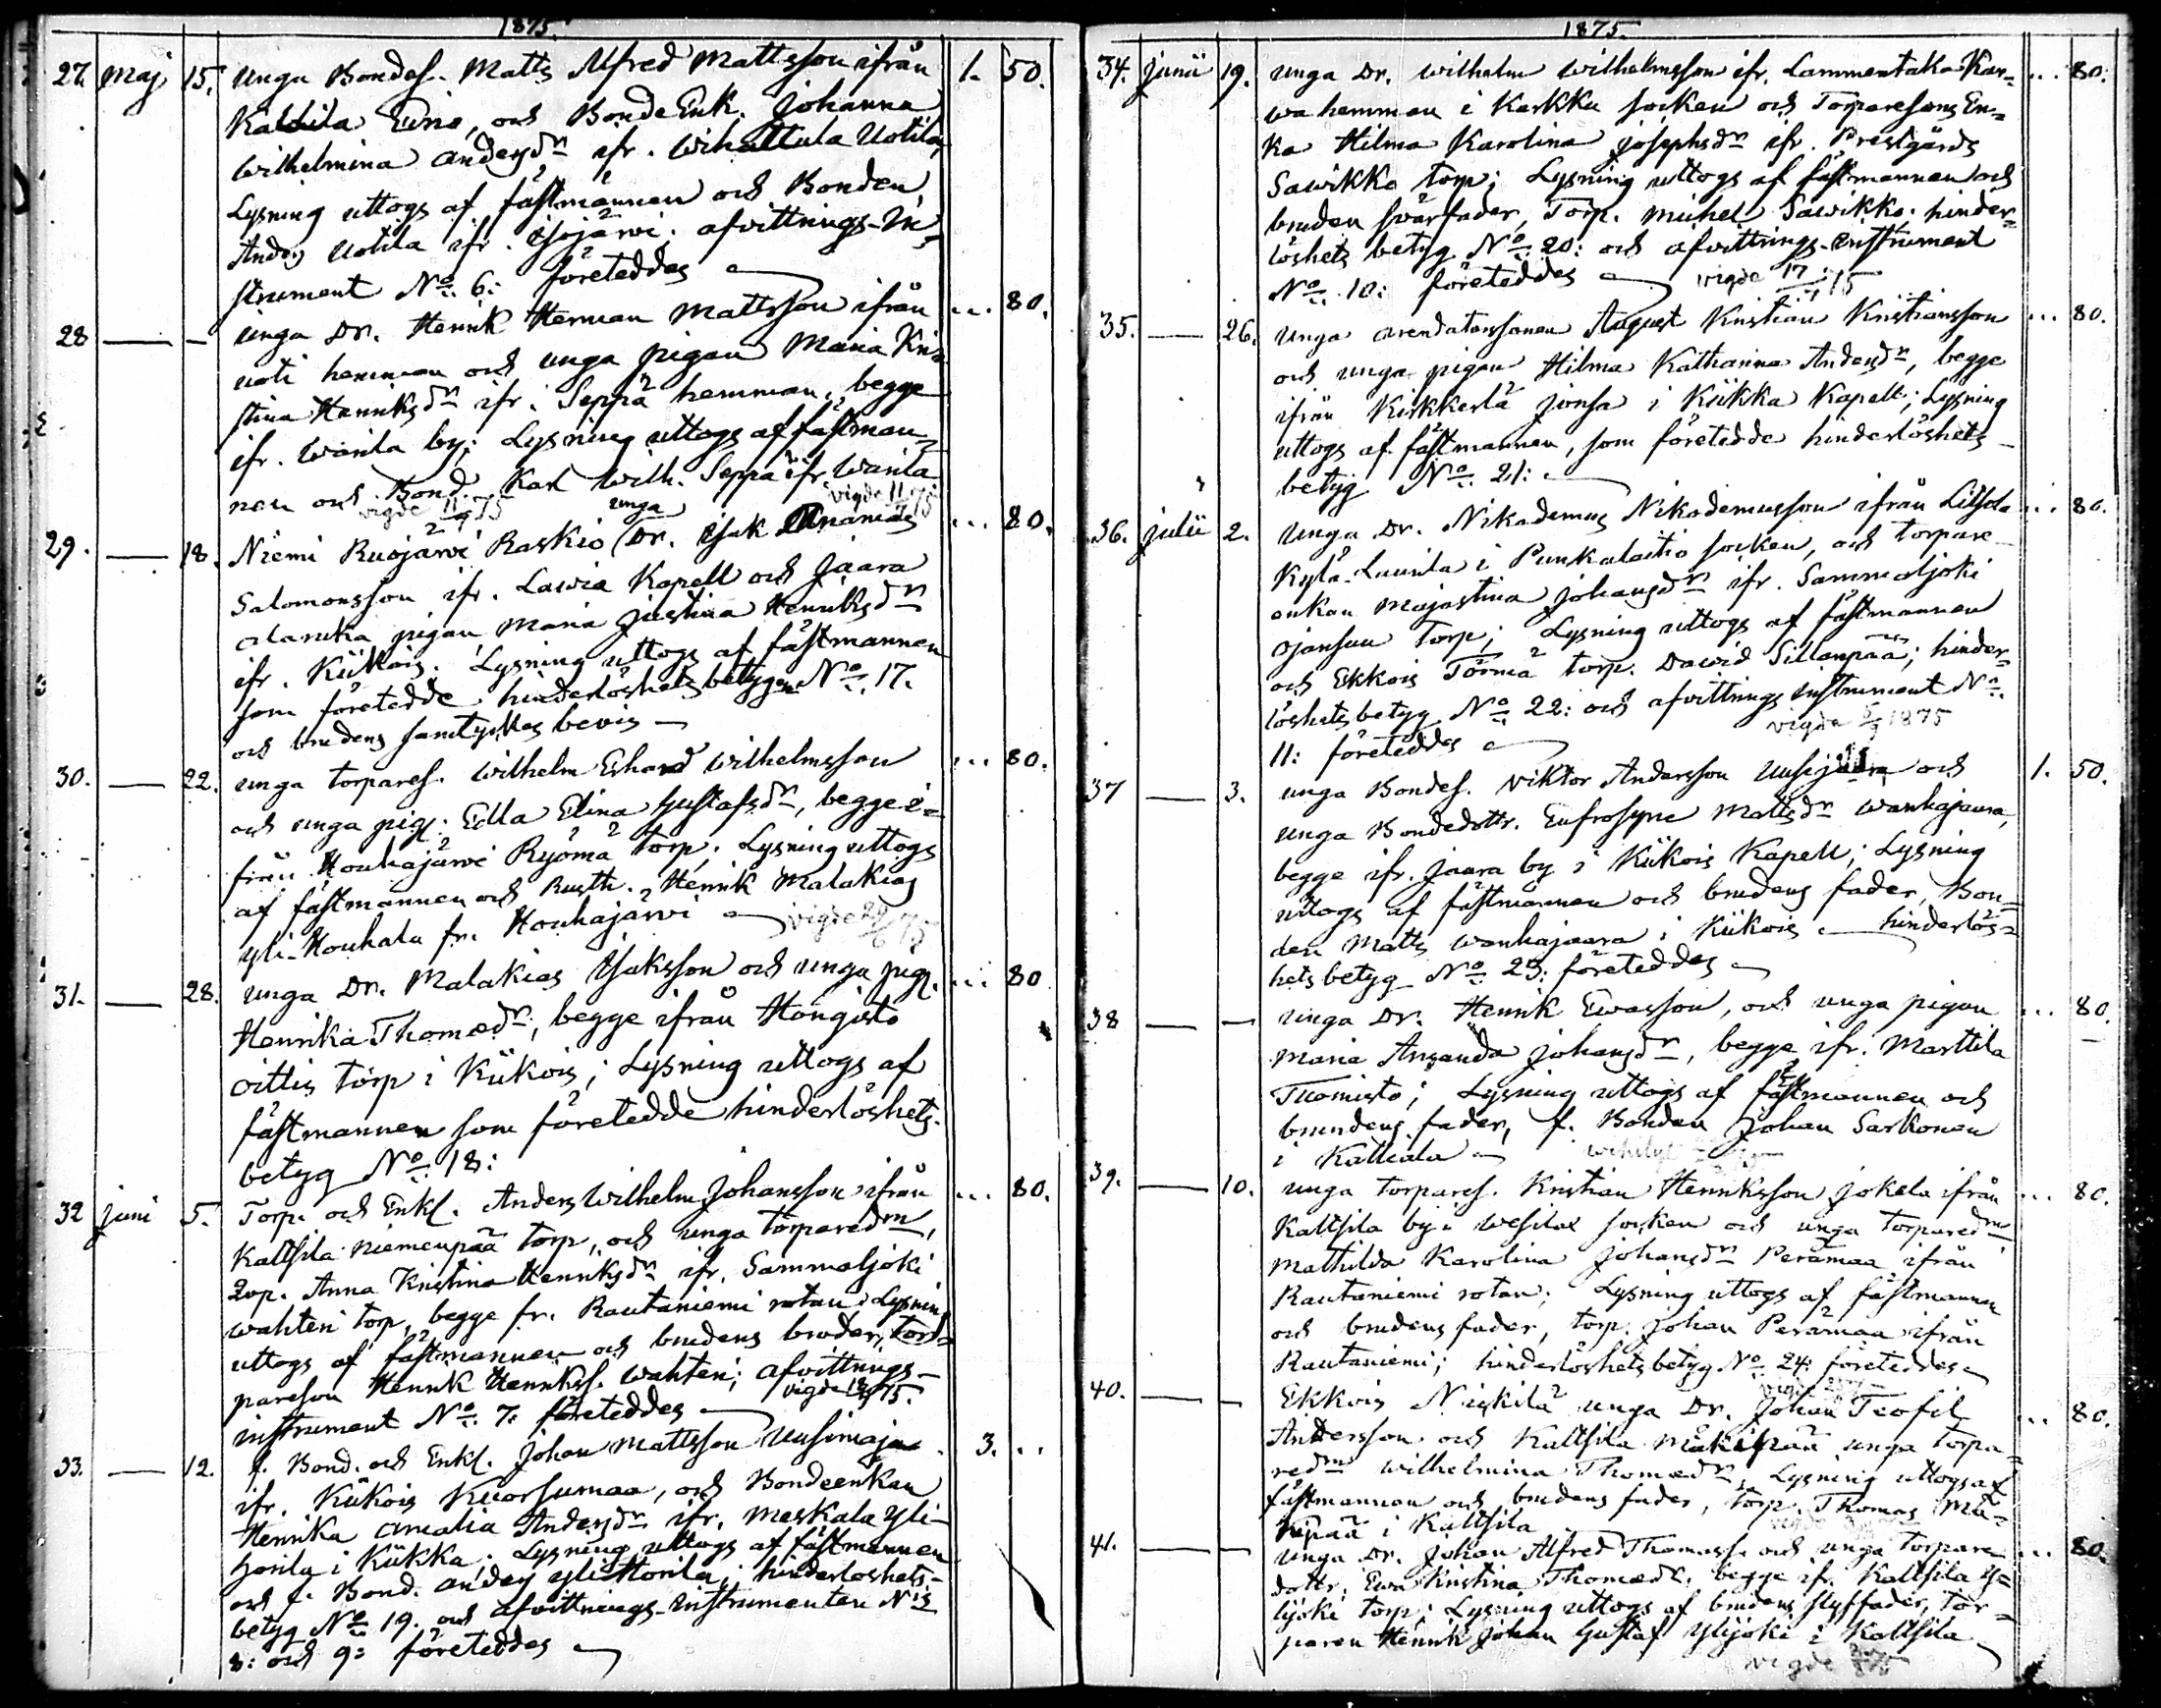 1875.
27. Maj 15. Unga Bondes. Matts Alfred Mattsson ifrån 1. 50.
Kaltsila Eino, och Bonde Enk. Johanna
Wilhelmina Andersdr ifr. Wihattula Uotila,
Lysning uttogs af fästmannen och Bonden
Anders Uotila ifr. Illojärvi. afvittrings-In-
strument No 6: företeddes
28 — — unga Dr. Henrik Herman Mattsson ifrån ... 80.
uoti hemman och unga pigan Maria Kri-
stina Henriksdr ifr. Seppä hemman, begge
ifr. Warila by; Lysning uttogs af fästman-
nen och Bond. Karl Wilh. Seppä ifr. Warila
vigde 11/7 75
29. — 18. Niemi Ruojärvi Raskio unga (Dr. Isak Ananias ... 80.
Salomonsson ifr. Lavia Kapell och Jaara
alanka pigan Maria Justina Henriksdr
ifr. Kiikois. Lysning uttogs af fästmannen
som företedde hinderlöshets betygen No 17.
och brudens samtyckes bevis —
30. — 22. unga torpares. Wilhelm Erhard Wilhelmsson ... 80.
och unga pig. Edla Elina Gustafsdr, begge i-
från Houhajärvi Ryömä torp; Lysning uttogs
af fästmannen och Rusth. Henrik Malakias
yli-Houhala fr. Houhajärvi — vigde 24/6 75
31. — 28. unga Dr. Malakias Isaksson och unga pig. ... 80
Henrika Thomædr, begge ifrån Hongisto
oittis torp i Kiikois; Lysning uttogs af
fästmannen som företedde hinderlöshets-
betyg No 18:
32 Juni 5. Torp. och Enkl. Anders Wilhelm Johansson ifrån ... 80.
Kaltsila Niemenpää torp, och unga torparedrn,
Qvp. Anna Kristina Henriksdr ifr. Sammaljoki
wahteri torp, begge fr. Rautaniemi rotan; Lysning
uttogs af fästmannen och brudens broder, tor-
pareson Henrik Henrikss. Wahteri; afvittrings-
instrument No 7. företeddes — vigde 18/7 75.
33. — 12. f. Bond. och Enkl. Johan Mattsson Uusimaja 3. ..
ifr. Kiikois Kuorsumaa, och Bondeenkan
Henrika Amalia Andersdr ifr. Meskala yli-
Horila i Kiikka; Lysning uttogs af fästmannen
och f. Bond. Anders yli-Horila; hinderlöshets-
betyg No 19. och afvittrings-Instrumenten Nis
8: och 9: företeddes —
1875.
34. Junii 19. unga Dr. Wilhelm Wilhelmsson ifr. Lammentaka Kar- ... 80.
wa hemman i Karkku socken och Torparesons En-
ka Hilma Karolina Josephsdr ifr. Prestgårds
Sawikko torp; Lysning uttogs af fästmannen och
bruden svärfader, Torp. Michel Sawikko; hinder-
löshets betyg No 20: och afvittrings-Instrument
No 10: företeddes — vigde 17/7 75
35. — 26. unga arendatorssonen August Kristian Kristiansson ... 80.
och unga pigan Hilma Katharina Andersdr, begge
ifrån Kirkkerlä Jonsa i Kiikka Kapell; Lysning
uttogs af fästmannen, som företedde hinderlöshets-
betyg No 21:
36. Julii 2. Unga Dr. Nikodemus Nikodemusson ifrån Liitsola ... 80.
Kylä-Laurila i Punkalaitio socken, och torpare
enkan Majastina Johansdr ifr. Sammaljoki
Ojansuu torp; Lysning uttogs af fästmannen
och Ekkois Törmä torp. David Sillanpää; hinder-
löshets betyg No 22: och afvittrings Instrument No
11: företeddes — vigde 1875
37 — 3. unga Bondes. Viktor Andersson Uusijaara och 1. 50.
unga Bondedottr. Eufrosyne Mattsdr Wanhajaara,
begge ifr. Jaara by i Kiikois Kapell; Lysning
uttogs af fästmannen och brudens fader, Bon-
den Matts Wanhajaara i Kiikois — hinderlös-
hets betyg No 23: företeddes —
38 — — unga Dr. Henrik Ewasson, och unga pigan ... 80.
Maria Amanda Johansdr, begge ifr. Marttila
Tuomisto; Lysning uttogs af fästmannen och
brudens fader, f. Bonden Johan Sarkonen
i Kalliala —
39. — 10. unga torpares. Kristian Henriksson Jokela ifrån ... 80.
Kaltsila by i Wesilax socken och unga torparedrn
Mathilda Karolina Johansdr Perämaa ifrån
Rautaniemi rotan; Lysning uttogs af fästmannen
och brudens fader, torp. Johan Perämaa ifrån
Rautaniemi; hinderlöshets betyg No 24: företeddes —
40. — — Ekkois Niskilä unga Dr. Johan Teofil ... 80.
Andersson och Kaltsila Mäkipää unga torpa-
redrn Wilhelmina Thomædr, Lysning uttogs af
fästmannen och brudens fader, torp. Thomas Mä-
kipää i Kaltsila
41. — — unga Dr. Johan Alfred Thomass. och unga torpare ... 80.
dottr. Ewa Kristina Thomædr, begge if. Kaltsila y-
lijoki torp; Lysning uttogs af brudens styffader, tor-
paren Henrik Johan Gustaf Ylijoki i Kaltsila
vigde